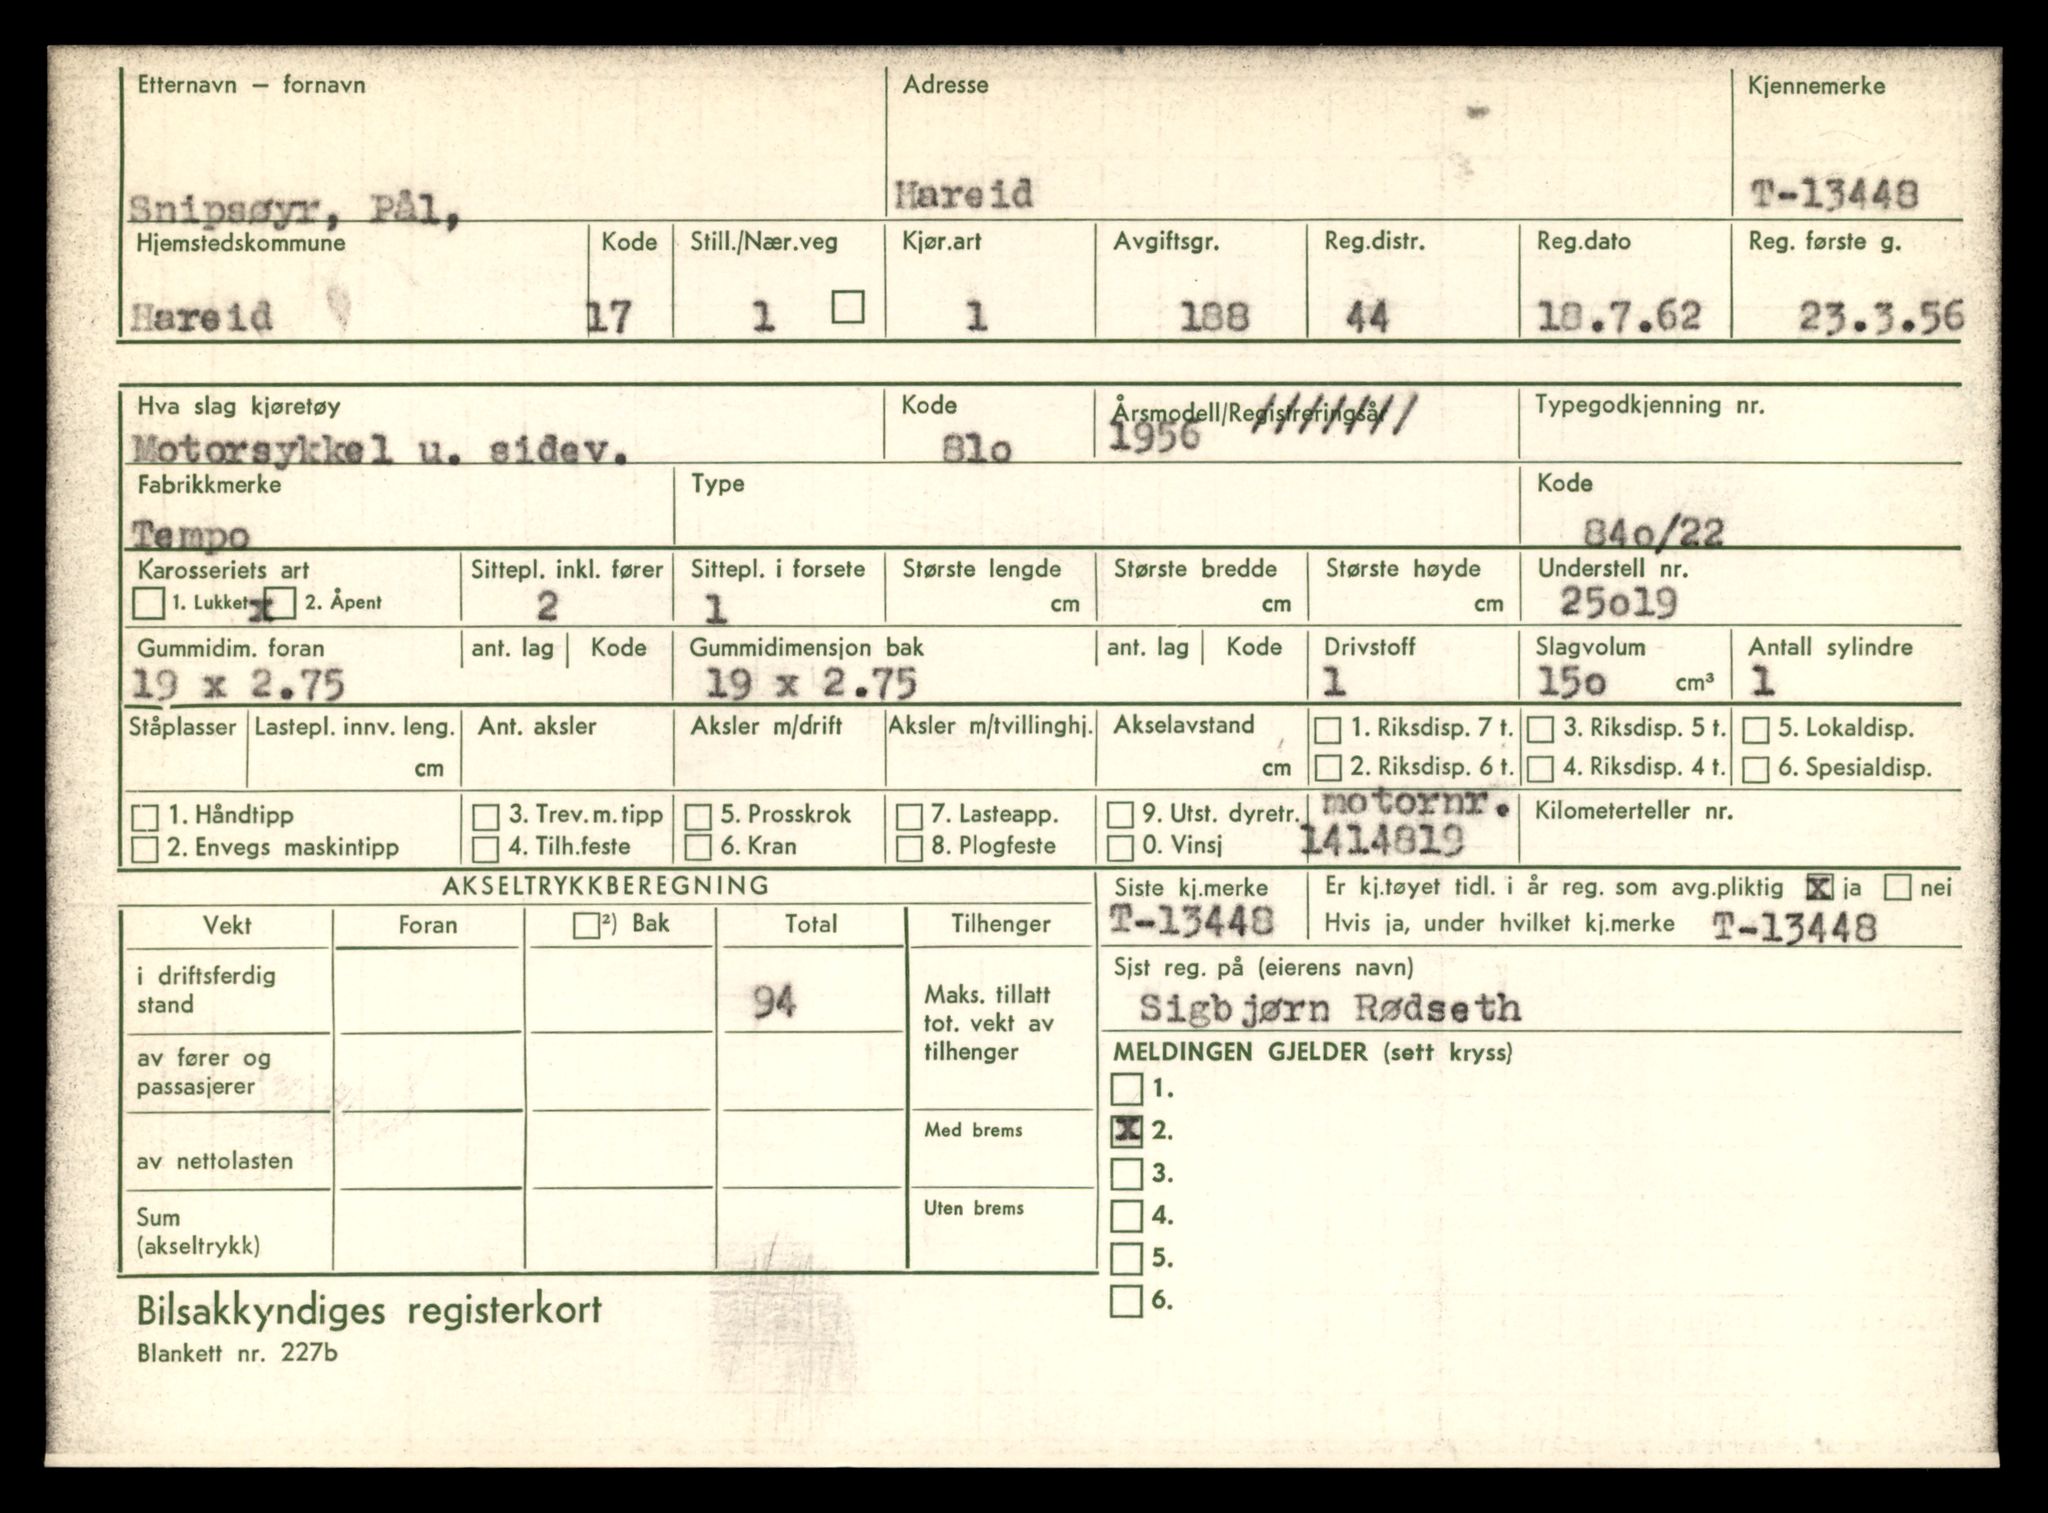 Etternavn — fornavn Adresse Kjennemerke
Snipsøyr, Pål, Hareid T-13448
Hjemstedskommune Kode Still./Nær.veg Kjør.art Avgiftsgr. Reg.distr. Reg.dato Reg. første g.
Hareid 17 1 1 188 44 18.7.62 23.3.56
Hva slag kjøretøy Kode Årsmodell/Registreringsår Typegodkjenning nr.
Motorsykkel u. sidev. 81o 1956
Fabrikkmerke Type Kode
Tempo 84o/22
Karosseriets art Sittepl. inkl. fører Sittepl. i forsete Største lengde Største bredde Største høyde Understell nr.
1. Lukket x 2. Åpent 2 1 cm cm cm 25o19
Gummidim. foran ant. lag Kode Gummidimensjon bak ant. lag Kode Drivstoff Slagvolum Antall sylindre
19 x 2.75 19 x 2.75 1 15o cm³ 1
Ståplasser Lastepl. innv. leng. Ant. aksler Aksler m/drift Aksler m/tvillinghj. Akselavstand 1. Riksdisp. 7 t. 3. Riksdisp. 5 t. 5. Lokaldisp.
cm cm 2. Riksdisp. 6 t. 4. Riksdisp. 4 t. 6. Spesialdisp.
1. Håndtipp 3. Trev. m. tipp 5. Prosskrok 7. Lasteapp. 9. Utst. dyretr. motornr. Kilometerteller nr.
2. Envegs maskintipp 4. Tilh.feste 6. Kran 8. Plogfeste 0. Vinsj 1414819
AKSELTRYKKBEREGNING Siste kj.merke Er kj.tøyet tidl. i år reg. som avg.pliktig x ja nei
Vekt Foran ²) Bak Total Tilhenger T-13448 Hvis ja, under hvilket kj.merke T-13448
i driftsferdig stand 94 Maks. tillatt tot. vekt av tilhenger Sist reg. på (eierens navn)
Sigbjørn Rødseth
av fører og passasjerer MELDINGEN GJELDER (sett kryss)
1.
Med brems x 2.
av nettolasten 3.
Sum (akseltrykk) Uten brems 4.
5.
Bilsakkyndiges registerkort 6.
Blankett nr. 227b